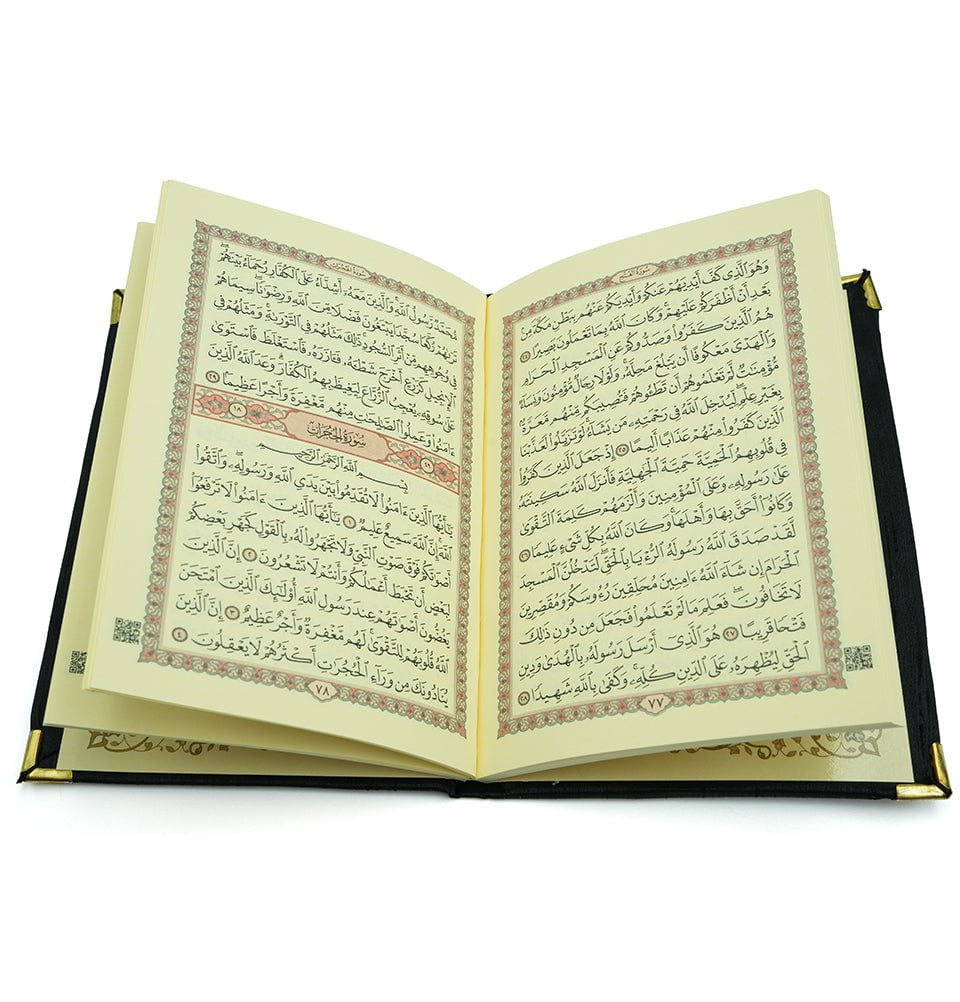 سُورَةُ الفَتْحِ
وَهُوَ ٱلَّذِى كَفَّ أَيْدِيَهُمْ عَنكُمْ وَأَيْدِيَكُمْ عَنْهُم بِبَطْنِ مَكَّةَ مِنۢ
بَعْدِ أَنْ أَظْفَرَكُمْ عَلَيْهِمْ ۚ وَكَانَ ٱللَّهُ بِمَا تَعْمَلُونَ بَصِيرًا ٢٤
هُمُ ٱلَّذِينَ كَفَرُوا۟ وَصَدُّوكُمْ عَنِ ٱلْمَسْجِدِ ٱلْحَرَامِ
وَٱلْهَدْىَ مَعْكُوفًا أَن يَبْلُغَ مَحِلَّهُۥ ۚ وَلَوْلَا رِجَالٌ مُّؤْمِنُونَ وَنِسَآءٌ
مُّؤْمِنَـٰتٌ لَّمْ تَعْلَمُوهُمْ أَن تَطَـُٔوهُمْ فَتُصِيبَكُم مِّنْهُم مَّعَرَّةٌۢ
بِغَيْرِ عِلْمٍ ۖ لِّيُدْخِلَ ٱللَّهُ فِى رَحْمَتِهِۦ مَن يَشَآءُ ۚ لَوْ تَزَيَّلُوا۟ لَعَذَّبْنَا
ٱلَّذِينَ كَفَرُوا۟ مِنْهُمْ عَذَابًا أَلِيمًا ٢٥ إِذْ جَعَلَ ٱلَّذِينَ كَفَرُوا۟
فِى قُلُوبِهِمُ ٱلْحَمِيَّةَ حَمِيَّةَ ٱلْجَـٰهِلِيَّةِ فَأَنزَلَ ٱللَّهُ سَكِينَتَهُۥ
عَلَىٰ رَسُولِهِۦ وَعَلَى ٱلْمُؤْمِنِينَ وَأَلْزَمَهُمْ كَلِمَةَ ٱلتَّقْوَىٰ
وَكَانُوٓا۟ أَحَقَّ بِهَا وَأَهْلَهَا ۚ وَكَانَ ٱللَّهُ بِكُلِّ شَىْءٍ عَلِيمًا ٢٦
لَّقَدْ صَدَقَ ٱللَّهُ رَسُولَهُ ٱلرُّءْيَا بِٱلْحَقِّ ۖ لَتَدْخُلُنَّ ٱلْمَسْجِدَ
ٱلْحَرَامَ إِن شَآءَ ٱللَّهُ ءَامِنِينَ مُحَلِّقِينَ رُءُوسَكُمْ وَمُقَصِّرِينَ
لَا تَخَافُونَ ۖ فَعَلِمَ مَا لَمْ تَعْلَمُوا۟ فَجَعَلَ مِن دُونِ ذَٰلِكَ
فَتْحًا قَرِيبًا ٢٧ هُوَ ٱلَّذِىٓ أَرْسَلَ رَسُولَهُۥ بِٱلْهُدَىٰ وَدِينِ
ٱلْحَقِّ لِيُظْهِرَهُۥ عَلَى ٱلدِّينِ كُلِّهِۦ ۚ وَكَفَىٰ بِٱللَّهِ شَهِيدًا ٢٨
٧٧
سُورَةُ الحُجُرَاتِ
مُّحَمَّدٌ رَّسُولُ ٱللَّهِ ۚ وَٱلَّذِينَ مَعَهُۥٓ أَشِدَّآءُ عَلَى ٱلْكُفَّارِ رُحَمَآءُ بَيْنَهُمْ ۖ
تَرَىٰهُمْ رُكَّعًا سُجَّدًا يَبْتَغُونَ فَضْلًا مِّنَ ٱللَّهِ وَرِضْوَٰنًا ۖ سِيمَاهُمْ
فِى وُجُوهِهِم مِّنْ أَثَرِ ٱلسُّجُودِ ۚ ذَٰلِكَ مَثَلُهُمْ فِى ٱلتَّوْرَىٰةِ ۚ وَمَثَلُهُمْ فِى
ٱلْإِنجِيلِ كَزَرْعٍ أَخْرَجَ شَطْـَٔهُۥ فَـَٔازَرَهُۥ فَٱسْتَغْلَظَ فَٱسْتَوَىٰ
عَلَىٰ سُوقِهِۦ يُعْجِبُ ٱلزُّرَّاعَ لِيَغِيظَ بِهِمُ ٱلْكُفَّارَ ۗ وَعَدَ ٱللَّهُ ٱلَّذِينَ
ءَامَنُوا۟ وَعَمِلُوا۟ ٱلصَّـٰلِحَـٰتِ مِنْهُم مَّغْفِرَةً وَأَجْرًا عَظِيمًۢا ٢٩
٤٩ سُورَةُ الحُجُرَاتِ ١٨
بِسْمِ ٱللَّهِ ٱلرَّحْمَـٰنِ ٱلرَّحِيمِ
يَـٰٓأَيُّهَا ٱلَّذِينَ ءَامَنُوا۟ لَا تُقَدِّمُوا۟ بَيْنَ يَدَىِ ٱللَّهِ وَرَسُولِهِۦ ۖ وَٱتَّقُوا۟
ٱللَّهَ ۚ إِنَّ ٱللَّهَ سَمِيعٌ عَلِيمٌ ١ يَـٰٓأَيُّهَا ٱلَّذِينَ ءَامَنُوا۟ لَا تَرْفَعُوٓا۟
أَصْوَٰتَكُمْ فَوْقَ صَوْتِ ٱلنَّبِىِّ وَلَا تَجْهَرُوا۟ لَهُۥ بِٱلْقَوْلِ كَجَهْرِ بَعْضِكُمْ
لِبَعْضٍ أَن تَحْبَطَ أَعْمَـٰلُكُمْ وَأَنتُمْ لَا تَشْعُرُونَ ٢ إِنَّ ٱلَّذِينَ
يَغُضُّونَ أَصْوَٰتَهُمْ عِندَ رَسُولِ ٱللَّهِ أُو۟لَـٰٓئِكَ ٱلَّذِينَ ٱمْتَحَنَ
ٱللَّهُ قُلُوبَهُمْ لِلتَّقْوَىٰ ۚ لَهُم مَّغْفِرَةٌ وَأَجْرٌ عَظِيمٌ ٣ إِنَّ ٱلَّذِينَ
يُنَادُونَكَ مِن وَرَآءِ ٱلْحُجُرَٰتِ أَكْثَرُهُمْ لَا يَعْقِلُونَ ٤
٧٨